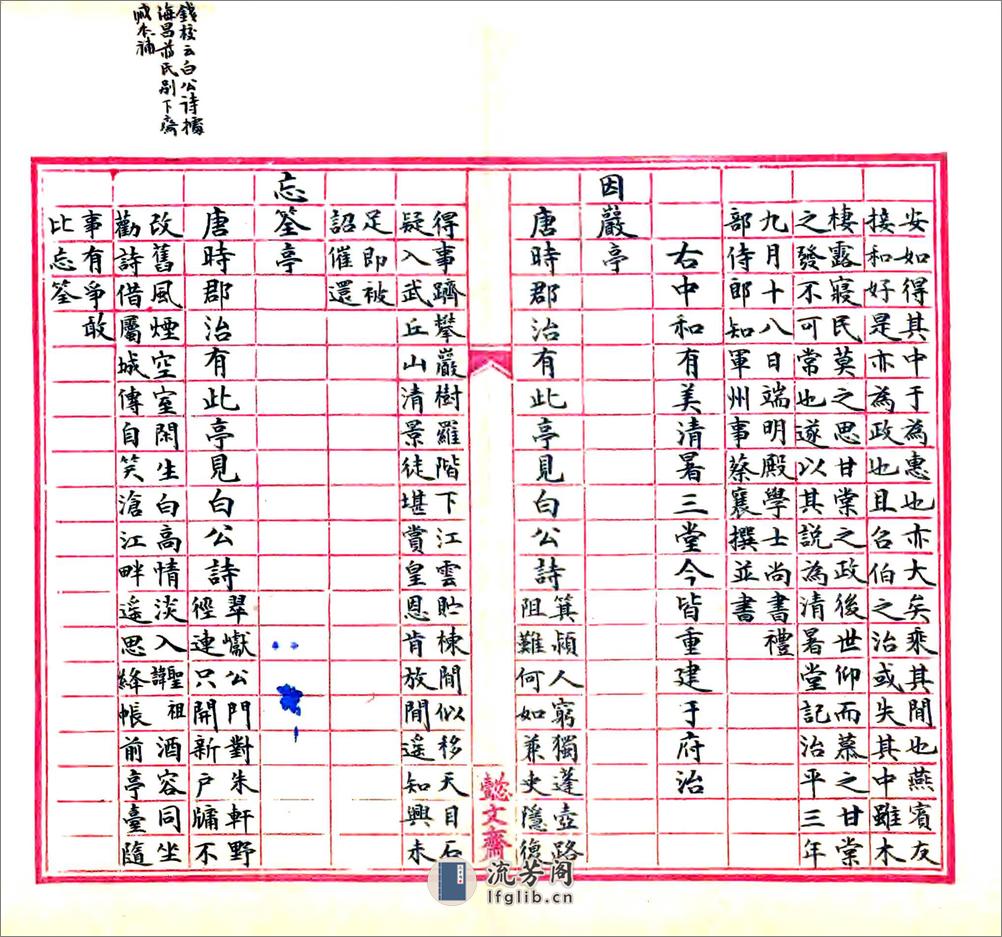 錢校云白公诗據
海昌蔣氏別下齋
臧本補
安如得其中于為惠也亦大矣乘其閒也燕賓友
接和好是亦為政也且召伯之治或失其中雖木
棲露寢民莫之思甘棠之政後世仰而慕之甘棠
之發不可常也遂以其說為清暑堂記治平三年
九月十八日端明殿學士尚書禮
部侍郎知軍州事蔡襄撰並書
右中和有美清暑三堂今皆重建于府治
因巖亭
唐時郡治有此亭見白公詩箕潁人窮獨蓬壺路
阻難何如兼吏隱復
得事躋攀巖樹羅階下江雲貯棟閒似移天目石
疑入武丘山清景徒堪賞皇恩肯放閒遥知興未
足即被
詔催還
忘筌亭
唐時郡治有此亭見白公詩翠巘公門對朱軒野
徑連只開新户牖不
改舊風煙空室閑生白高情淡入聖祖諱酒容同坐
勸詩借屬城傳自笑滄江畔遥思絳帳前亭臺隨
事有爭敢
比忘筌
懿文齋
流芳阁
lfglib.cn